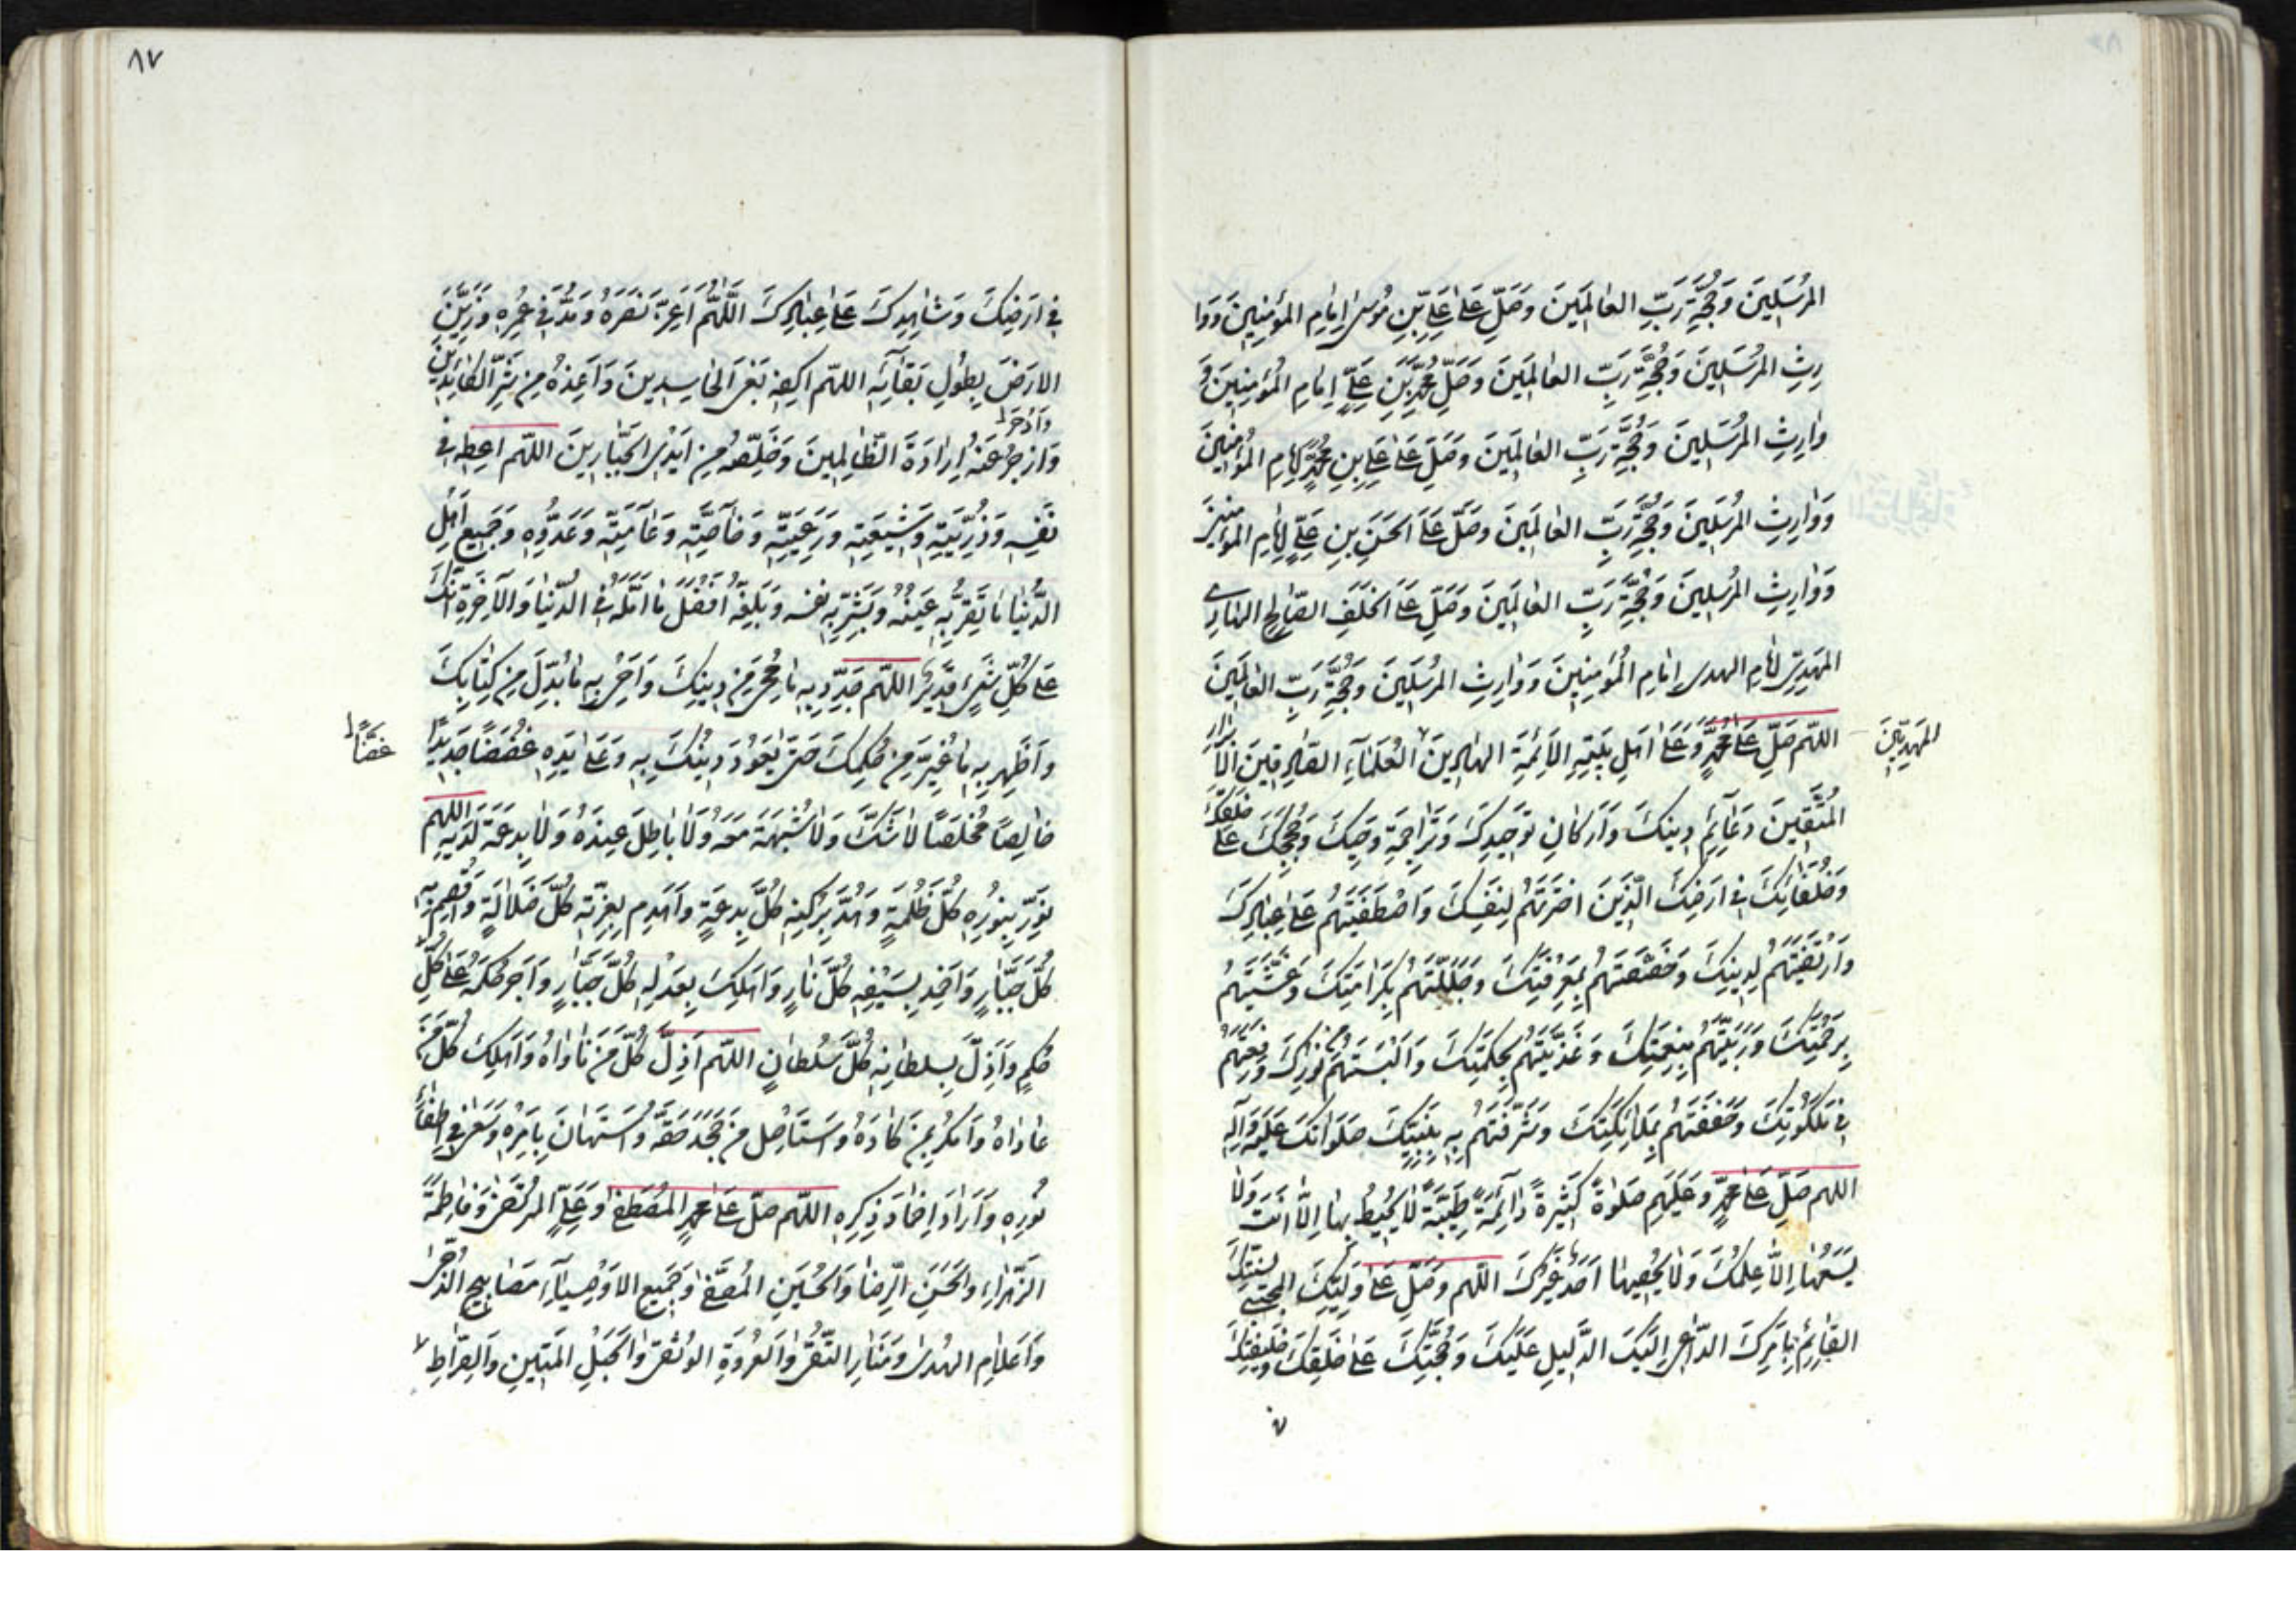 المُرْسَلِينَ وَحُجَّةِ رَبِّ العَالَمِينَ وَصَلِّ عَلَى عَلِيِّ بْنِ مُوسَى إِمَامِ المُؤْمِنِينَ وَوَا
رِثِ المُرْسَلِينَ وَحُجَّةِ رَبِّ العَالَمِينَ وَصَلِّ مُحَمَّدِ بْنِ عَلِيٍّ إِمَامِ المُؤْمِنِينَ وَ
وَارِثِ المُرْسَلِينَ وَحُجَّةِ رَبِّ العَالَمِينَ وَصَلِّ عَلَى عَلِيِّ بْنِ مُحَمَّدٍ إِمَامِ المُؤْمِنِينَ
وَوَارِثِ المُرْسَلِينَ وَحُجَّةِ رَبِّ العَالَمِينَ وَصَلِّ عَلَى الحَسَنِ بْنِ عَلِيٍّ إِمَامِ المُؤْمِنِينَ
وَوَارِثِ المُرْسَلِينَ وَحُجَّةِ رَبِّ العَالَمِينَ وَصَلِّ عَلَى الخَلَفِ الصَّالِحِ الهَادِي
المَهْدِيِّ إِمَامِ الهدى إِمَامِ المُؤْمِنِينَ وَوَارِثِ المُرْسَلِينَ وَحُجَّةِ رَبِّ العَالَمِينَ
اللهم صَلِّ عَلَى مُحَمَّدٍ وَعَلَى أَهْلِ بَيْتِهِ الأَئِمَّةِ الهَادِينَ العُلَمَاءِ الصَّادِقِينَ الأَبْرَارِ
المَهْدِيِّينَ
المُتَّقِينَ دَعَائِمِ دِينِكَ وَأَرْكَانِ تَوْحِيدِكَ وَتَرَاجِمَةِ وَحْيِكَ وَحُجَجِكَ عَلَى خَلْقِكَ
وَخُلَفَائِكَ فِي أَرْضِكَ الَّذِينَ اخْتَرْتَهُمْ لِنَفْسِكَ وَاصْطَفَيْتَهُمْ عَلَى عِبَادِكَ
وَارْتَضَيْتَهُمْ لِدِينِكَ وَخَصَصْتَهُمْ بِمَعْرِفَتِكَ وَجَلَّلْتَهُمْ بِكَرَامَتِكَ وَغَشَّيْتَهُمْ
بِرَحْمَتِكَ وَرَبَّيْتَهُمْ بِنِعْمَتِكَ وَغَذَّيْتَهُمْ بِحِكْمَتِكَ وَأَلْبَسْتَهُمْ نُورَكَ وَرَفَعْتَهُمْ
فِي مَلَكُوتِكَ وَحَفَفْتَهُمْ بِمَلَائِكَتِكَ وَشَرَّفْتَهُمْ بِهِ بِنَبِيِّكَ صَلَوَاتُكَ عَلَيْهِ وَآلِهِ
اللهم صَلِّ عَلَى مُحَمَّدٍ وَعَلَيْهِمْ صَلَوةً كَثِيرَةً دَائِمَةً طَيِّبَةً لَا يُحِيطُ بِهَا إِلَّا أَنْتَ وَلَا
يَسَعُهَا إِلَّا عِلْمُكَ وَلَا يُحْصِيهَا أَحَدٌ غَيْرُكَ اللهم وَصَلِّ عَلَى وَلِيِّكَ المُحْيِي سُنَّتَكَ
القَائِمِ بِأَمْرِكَ الدَّاعِي إِلَيْكَ الدَّلِيلِ عَلَيْكَ وَحُجَّتِكَ عَلَى خَلْقِكَ وَخَلِيفَتِكَ
٨٧
فِي أَرْضِكَ وَشَاهِدِكَ عَلَى عِبَادِكَ اللَّهُمَّ أَعِزَّ نَصْرَهُ وَمُدَّ فِي عُمْرِهِ وَزَيِّنِ
الأَرْضَ بِطُولِ بَقَائِهِ اللهم اكْفِهِ بَغْيَ الحَاسِدِينَ وَأَعِذْهُ مِنْ شَرِّ الكَائِدِينَ
وَازْجُرْ عَنْهُ إِرَادَةَ الظَّالِمِينَ وَخَلِّصْهُ مِنْ أَيْدِي الجَبَّارِينَ اللهم أَعْطِهِ فِي
نَفْسِهِ وَذُرِّيَّتِهِ وَشِيعَتِهِ وَرَعِيَّتِهِ وَخَاصَّتِهِ وَعَامَّتِهِ وَعَدُوِّهِ وَجَمِيعِ أَهْلِ
الدُّنْيَا مَا تُقِرُّ بِهِ عَيْنَهُ وَتَسُرُّ بِهِ نفسه وَبَلِّغْهُ أَفْضَلَ مَا أَمَّلَهُ فِي الدُّنْيَا وَالآخِرَةِ إِنَّكَ
عَلَى كُلِّ شَيْءٍ قَدِيرٌ اللهم جَدِّدْ بِهِ مَا مُحِيَ مِنْ دِينِكَ وَأَحْيِ بِهِ مَا بُدِّلَ مِنْ كِتَابِكَ
وَأَظْهِرْ بِهِ مَا غُيِّرَ مِنْ حُكْمِكَ حَتَّى يَعُودَ دِينُكَ بِهِ وَعَلَى يَدِهِ غَضَضًا جَدِيدًا
غَضًّا
خَالِصًا مُخْلَصًا لَا شَكَّ وَلَا شُبْهَةَ مَعَهُ وَلَا بَاطِلَ عِنْدَهُ وَلَا بِدْعَةَ لَدَيْهِ اللهم
نَوِّرْ بِنُورِهِ كُلَّ ظُلْمَةٍ وَهُدَّ بِرُكْنِهِ كُلَّ بِدْعَةٍ وَاهْدِمْ بِعِزَّتِهِ كُلَّ ضَلَالَةٍ وَاقْصِمْ بِهِ
كُلَّ جَبَّارٍ وَأَخْمِدْ بِسَيْفِهِ كُلَّ نَارٍ وَأَهْلِكْ بِعَدْلِهِ كُلَّ جَبَّارٍ وَأَجْرِ حُكْمَهُ عَلَى كُلِّ
حُكْمٍ وَأَذِلَّ بِسلطَانِهِ كُلَّ سُلْطَانٍ اللهم أَذِلَّ كُلَّ مَنْ نَاوَاهُ وَأَهْلِكْ كُلَّ مَنْ
عَادَاهُ وَامْكُرْ بِمَنْ كَادَهُ وَاسْتَأْصِلْ مَنْ جَحَدَ حَقَّهُ وَاسْتَهَانَ بِأَمْرِهِ وَسَعَى فِي إِطْفَاءِ
نُورِهِ وَأَرَادَ إِخْمَادَ ذِكْرِهِ اللهم صَلِّ عَلَى مُحَمَّدٍ المُصْطَفَى وَعَلِيٍّ المُرْتَضَى وَفَاطِمَةَ
الزَّهْرَاءِ وَالحَسَنِ الرِّضَا وَالحُسَيْنِ المُصَفَّى وَجَمِيعِ الأَوْصِيَاءِ مَصَابِيحِ الدُّجَى
وَأَعْلَامِ الهُدَى وَمَنَارِ التُّقَى وَالعُرْوَةِ الوُثْقَى وَالحَبْلِ المَتِينِ وَالصِّرَاطِ